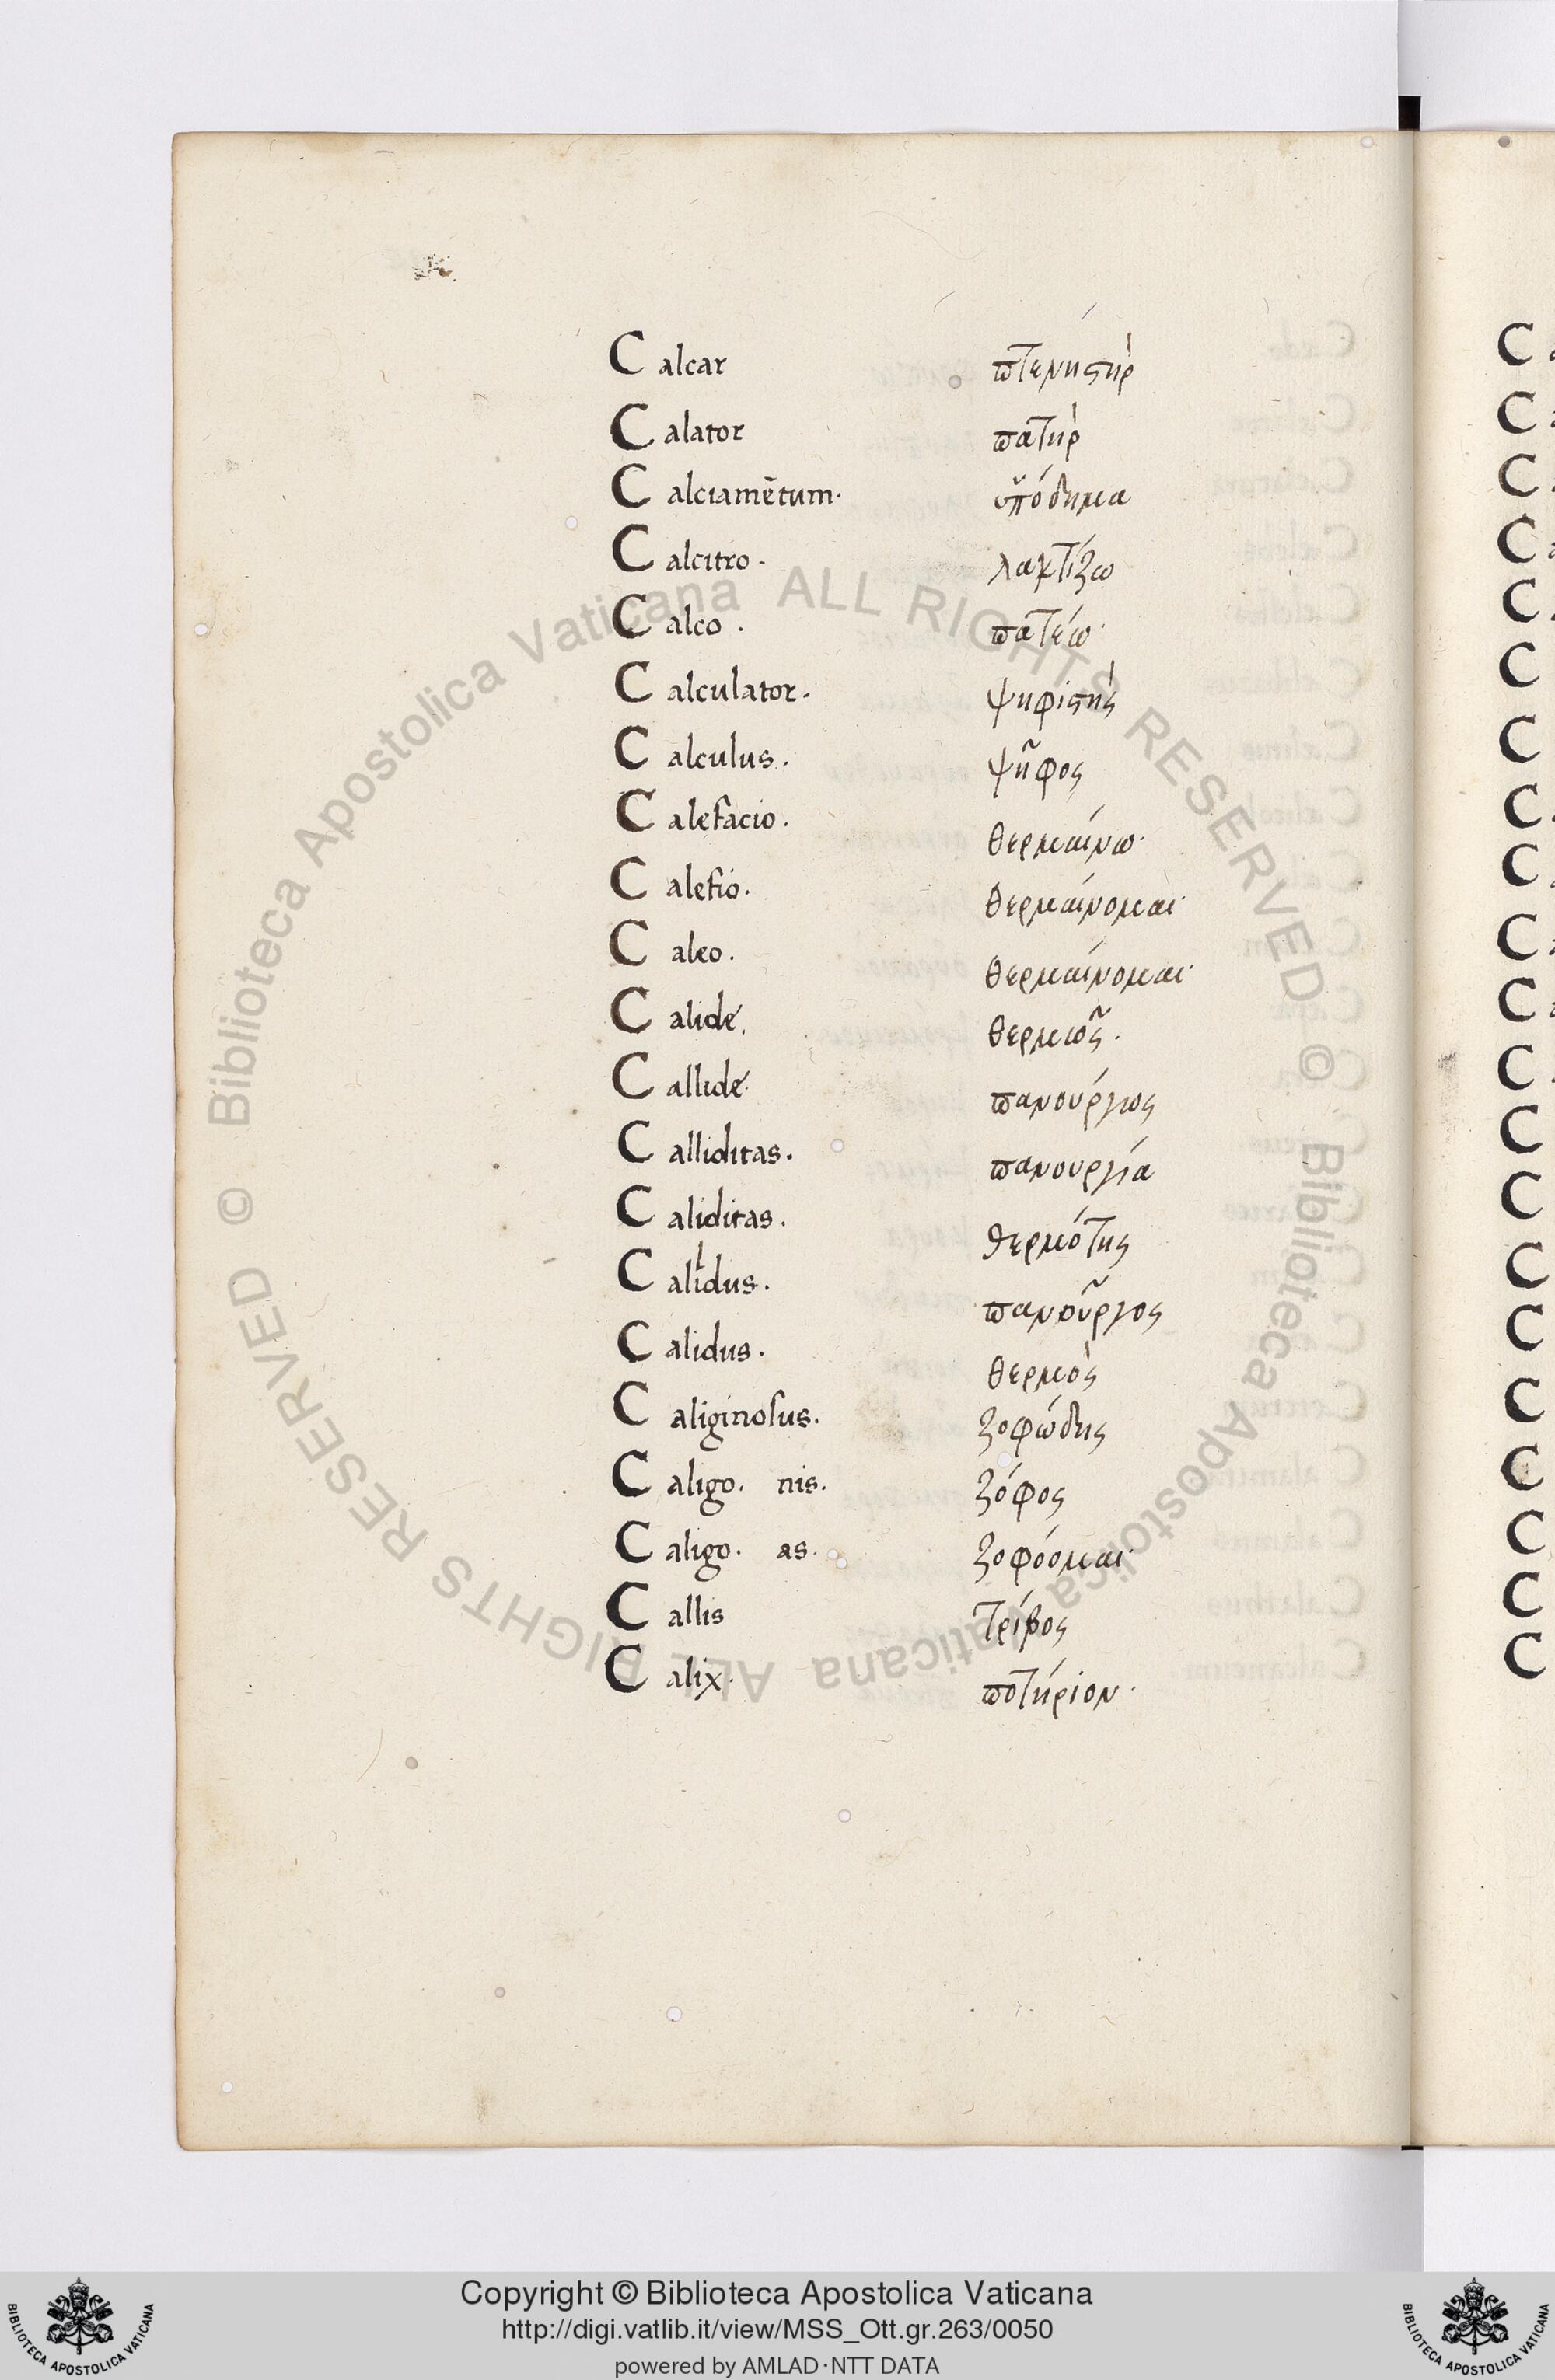 Calcar πτενηστὴρ
Calator πατὴρ
Calciamētum. ὑπόδημα
Calcitro. λακτίζω
Calco. πατέω
Calculator. ψηφιστὴς
Calculus. ψῆφος
Calefacio. θερμαίνω
Calefio. θερμαίνομαι
Caleo. θερμαίνομαι
Calidé. θερμῶς.
Callidé πανούργως
Calliditas. πανουργία
Caliditas. θερμότης
Callidus. πανοῦργος
Calidus. θερμὸς
Caliginosus. ζοφώδης
Caligo. nis. ζόφος
Caligo. as. ζοφόομαι
Callis τρίβος
Calix. ποτήριον.
Biblioteca Apostolica Vaticana ALL RIGHTS RESERVED ©
Biblioteca Apostolica Vaticana ALL RIGHTS RESERVED ©
Copyright © Biblioteca Apostolica Vaticana
http://digi.vatlib.it/view/MSS_Ott.gr.263/0050
powered by AMLAD·NTT DATA
BIBLIOTECA APOSTOLICA VATICANA
BIBLIOTECA APOSTOLICA VATICANA